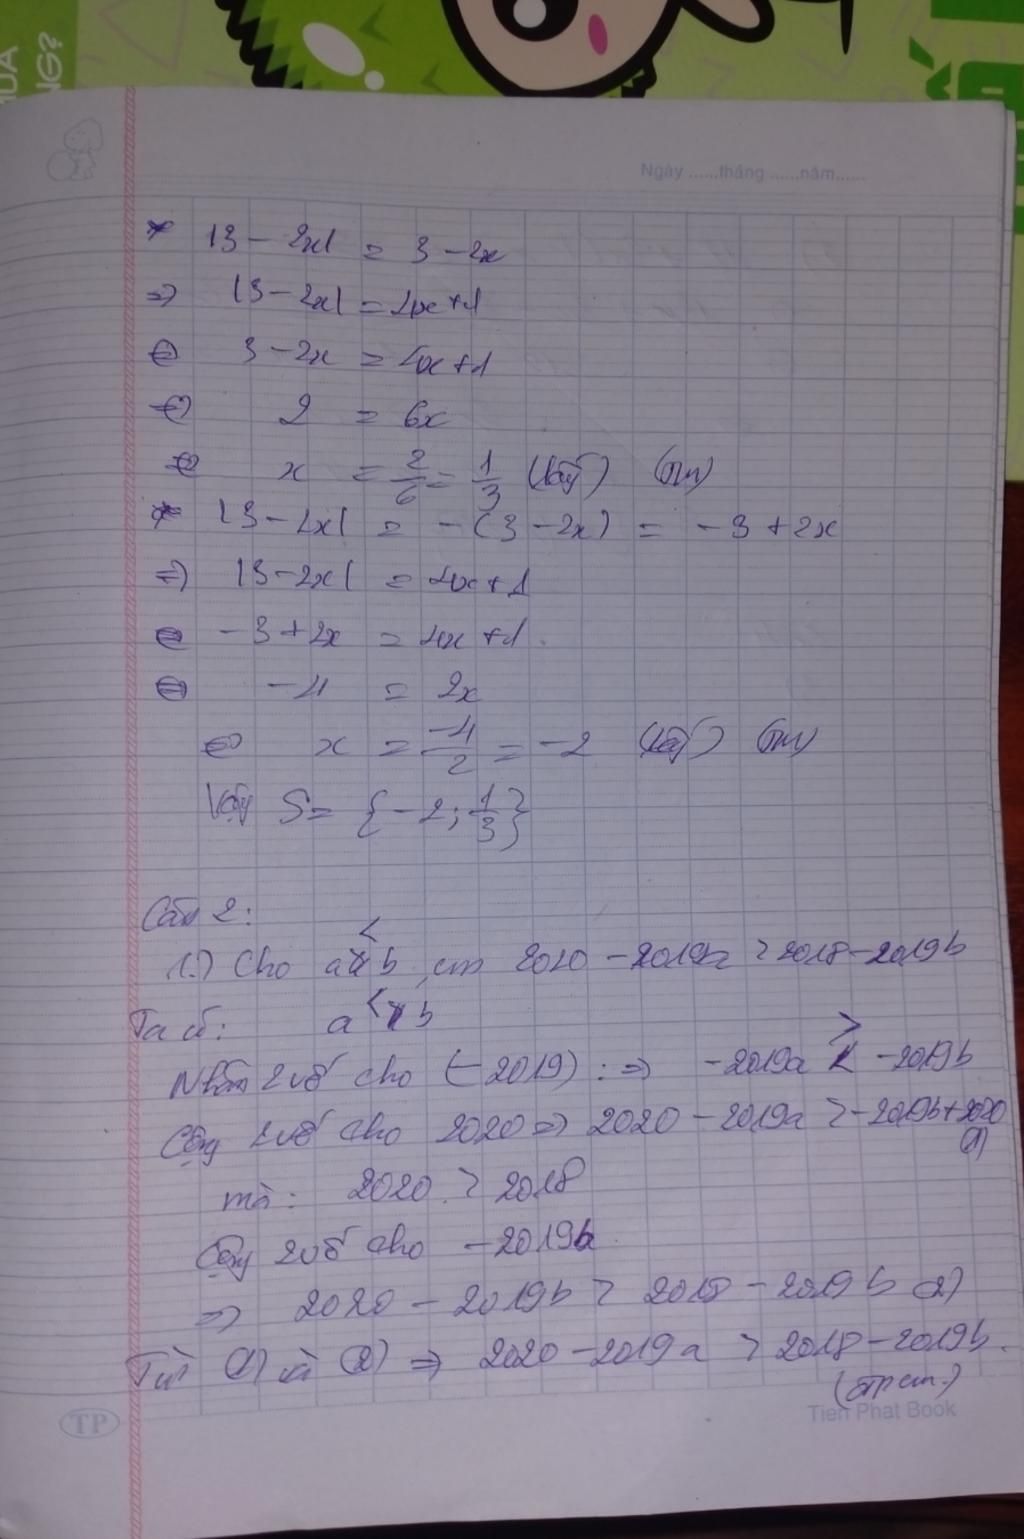 MUA
NG?
Ngày ......tháng ......năm......
* |3 - 2x| = 3 - 2x
=> |3 - 2x| = 4x + 1
<=> 3 - 2x = 4x + 1
<=> 2 = 6x
<=> x = 2/6 = 1/3 (loại) (tm)
* |3 - 2x| = -(3 - 2x) = -3 + 2x
=> |3 - 2x| = 4x + 1
<=> -3 + 2x = 4x + 1.
<=> -4 = 2x
<=> x = -4/2 = -2 (loại) (tm)
Vậy S = {-2; 1/3}
Câu 2:
1.) Cho a < b cm 2020 - 2019a > 2018 - 2019b
Ta có: a < b
Nhân 2 vế cho (-2019) : => -2019a > -2019b
Cộng 2 vế cho 2020 => 2020 - 2019a > -2019b + 2020
(1)
mà: 2020 > 2018
Cộng 2 vế cho -2019b
=> 2020 - 2019b > 2018 - 2019b (2)
Từ (1) và (2) => 2020 - 2019a > 2018 - 2019b.
(đpcm.)
TP
Tien Phat Book